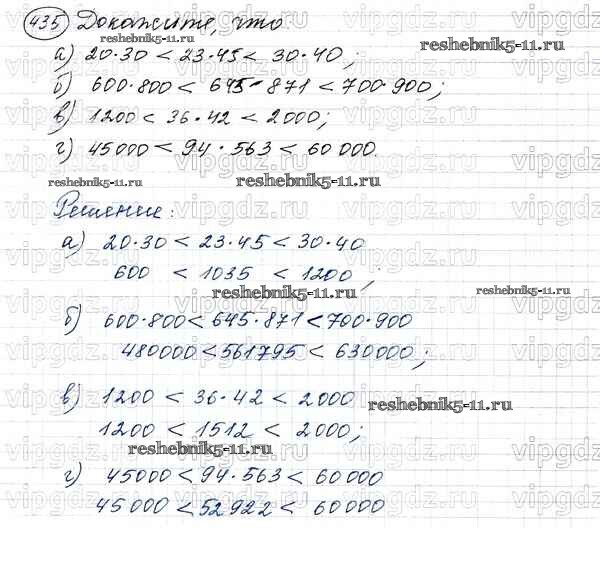 435 Докажите, что
reshebnik5-11.ru
а) 20·30 < 23·45 < 30·40;
б) 600·800 < 645·871 < 700·900;
в) 1200 < 36·42 < 2000;
г) 45000 < 94·563 < 60000.
reshebnik5-11.ru
reshebnik5-11.ru
Решение:
а) 20·30 < 23·45 < 30·40
600 < 1035 < 1200;
reshebnik5-11.ru
reshebnik5-11.ru
б) 600·800 < 645·871 < 700·900
480000 < 561795 < 630000;
в) 1200 < 36·42 < 2000
reshebnik5-11.ru
1200 < 1512 < 2000;
reshebnik5-11.ru
г) 45000 < 94·563 < 60000
45000 < 52922 < 60000
vipgdz.ru